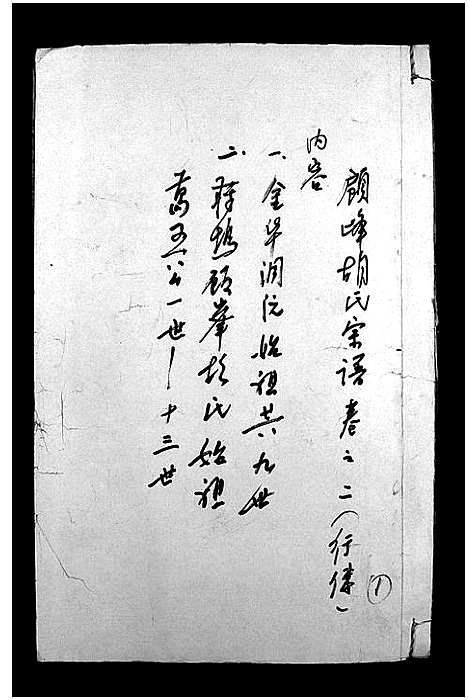 顾峰胡氏宗谱卷之二（行传）
①
内容
一、金华润沅始祖共九世
二、蒋鸠顾峯胡氏始祖
万五公一世—十三世